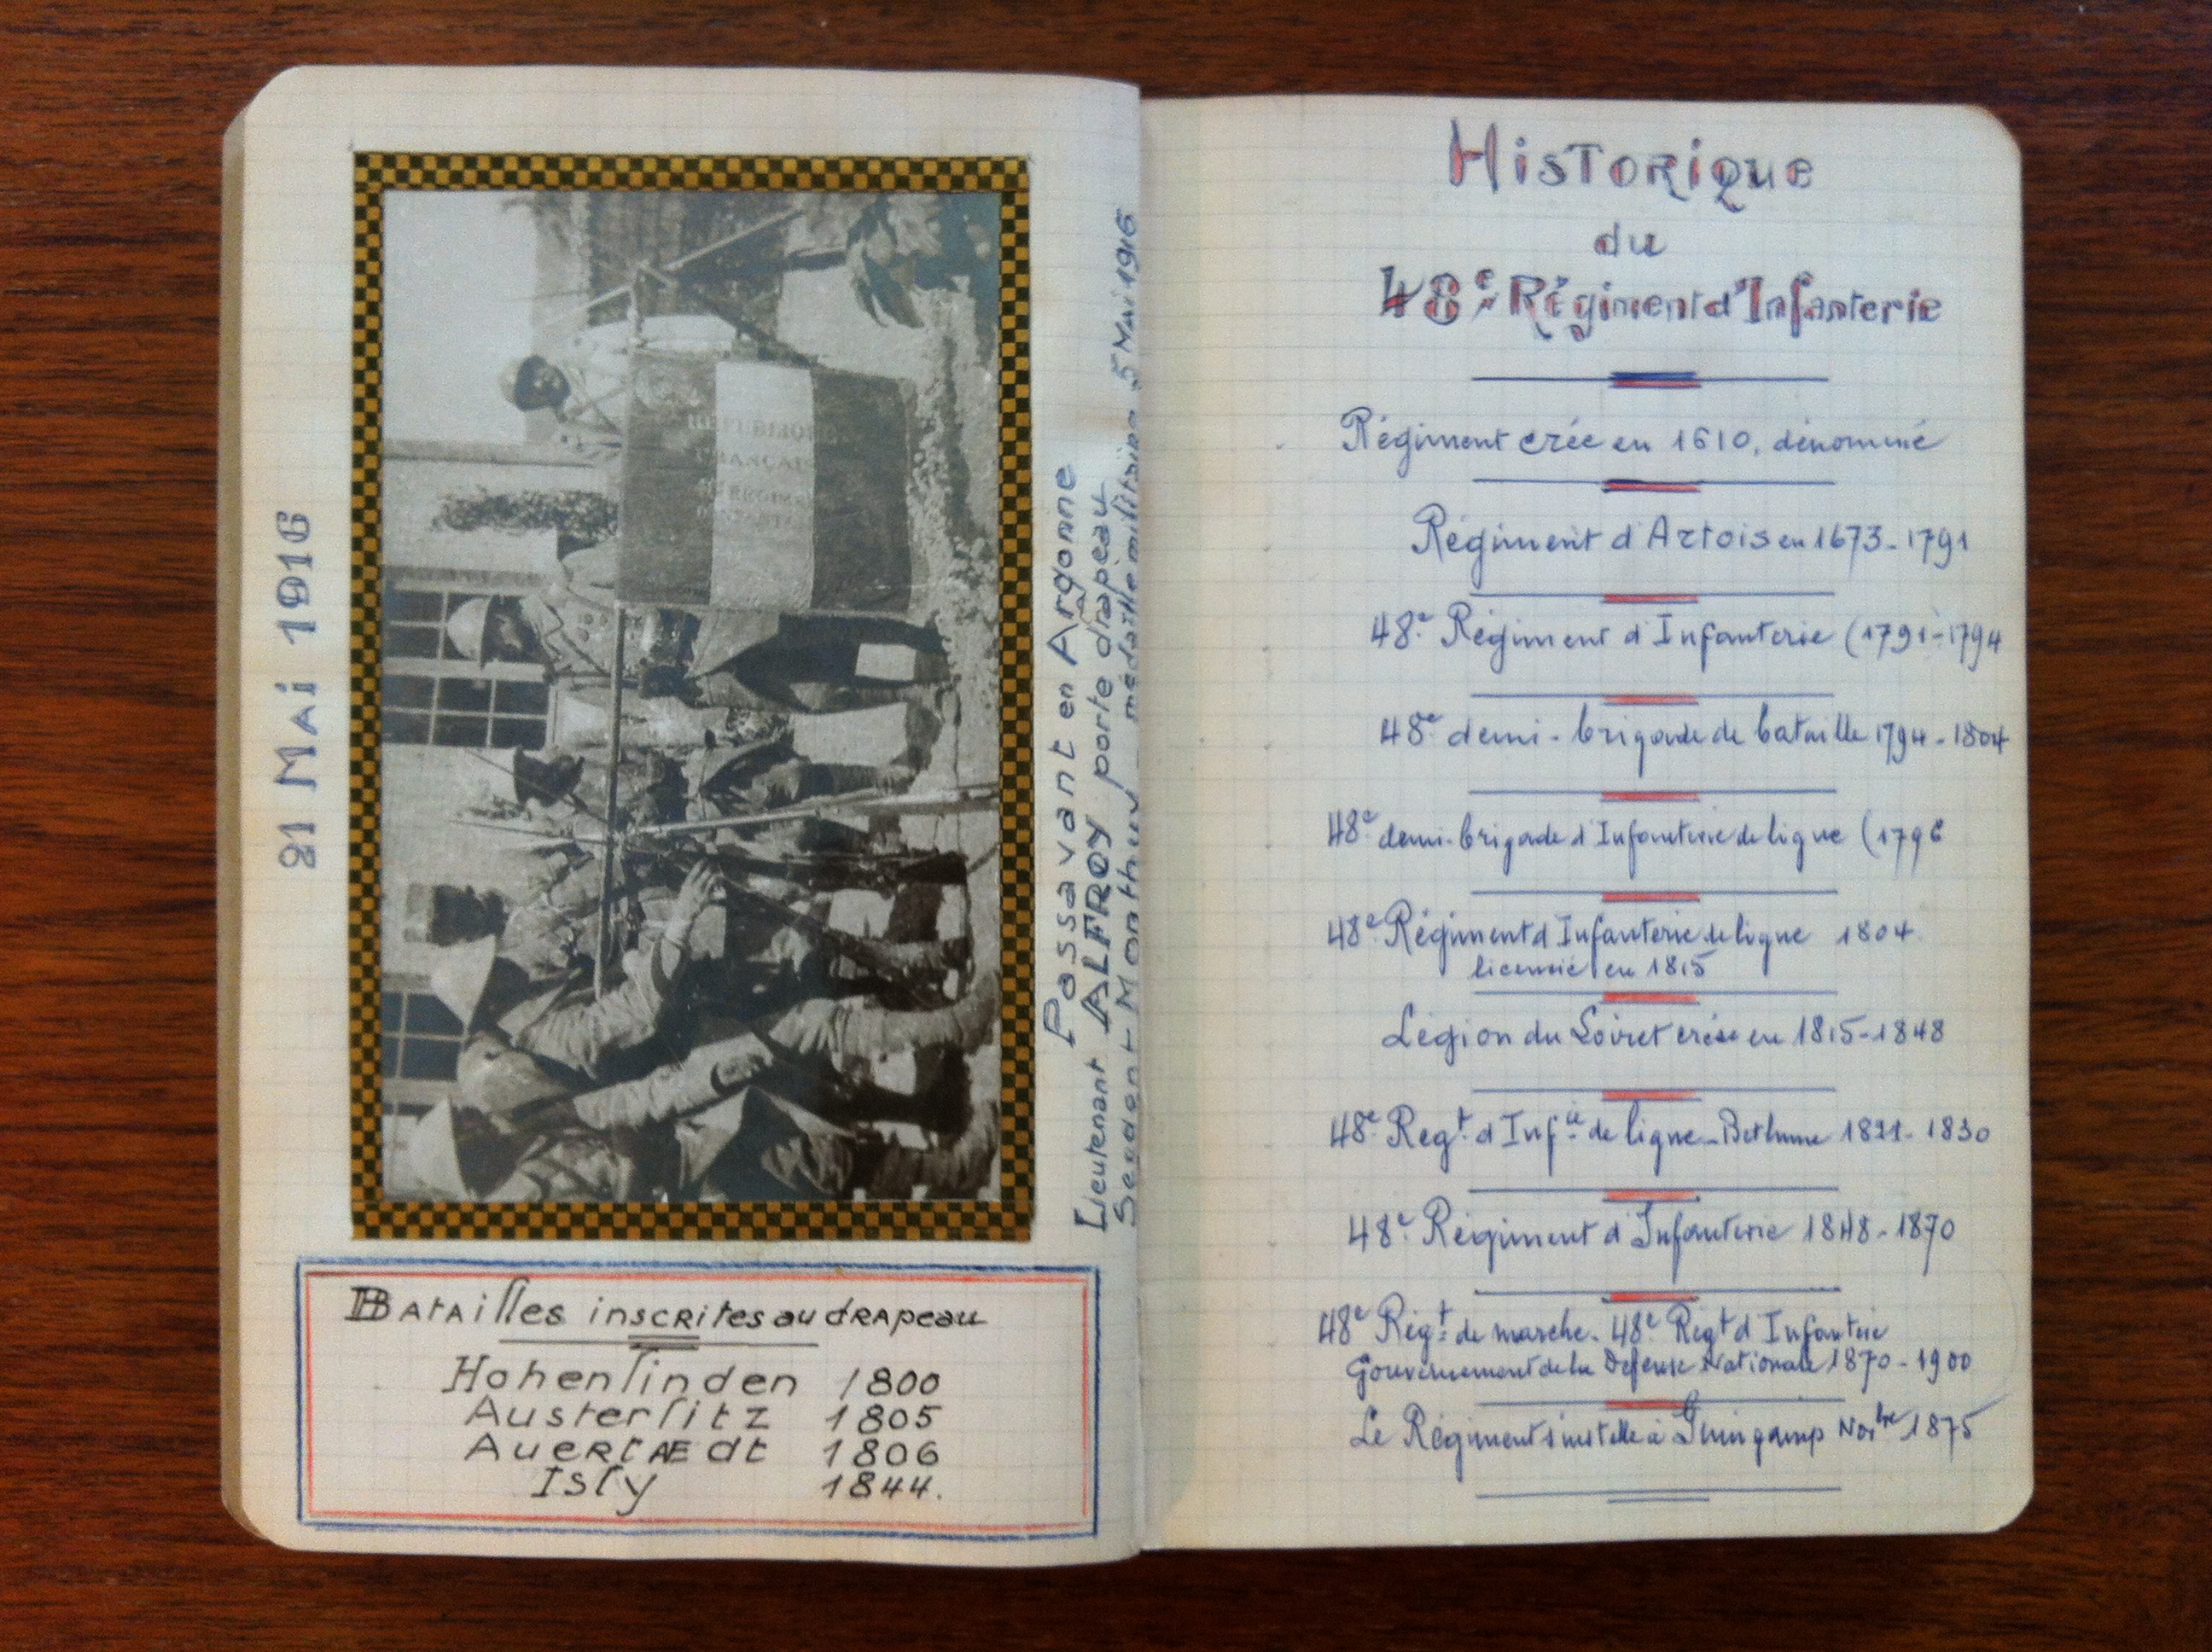 21 MAi 1916
REPUBLIQUE
FRANÇAIS
REGIME
Passavant en Argonne
Lieutenant ALFROY porte drapeau
médaille militaire 5 Mai 1916
BATAilles inscRites au dRApeau
Hohenlinden 1800
Austerlitz 1805
AueRtÆdt 1806
Isly 1844.
HisToRique
du
48e Régiment d'Infanterie
Régiment crée en 1610, dénommé
Régiment d'Artois en 1673-1791
48e Régiment d'Infanterie (1791-1794
48e demi-brigade de bataille 1794-1804
48e demi-brigade d'Infanterie de ligne (1796
48e Régiment d'Infanterie de ligne 1804
licencié en 1815
Légion du Loiret créée en 1815-1848
48e Regt. d'Infie de ligne-Bethune 1821-1830
48e Régiment d'Infanterie 1848-1870
48e Régt de marche. 48e Regt d'Infanterie
Gouvernement de la Défense Nationale 1870-1900
Le Régiment s'installe à Guingamp Novbre 1875